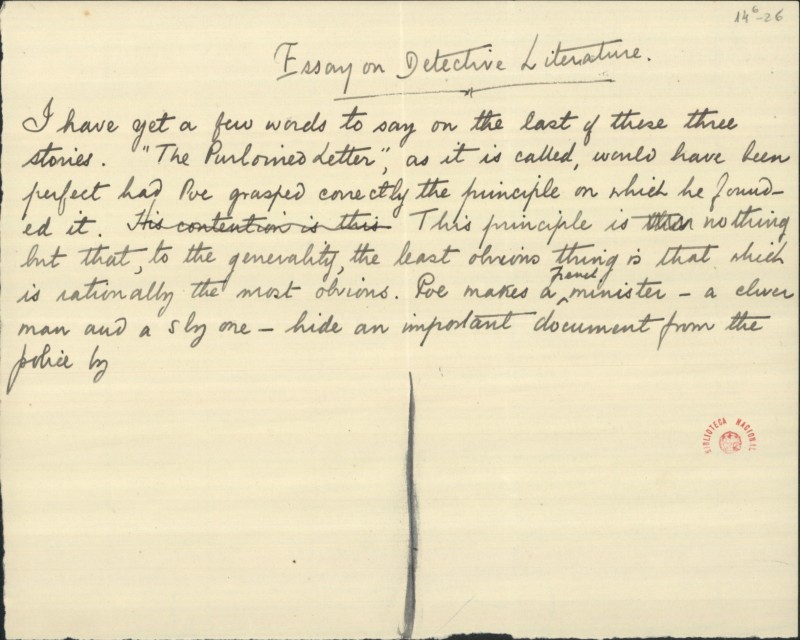 14⁶-26
Essay on Detective Literature.
I have yet a few words to say on the last of these three
stories. "The Purloined Letter", as it is called, would have been
perfect had Poe grasped correctly the principle on which he found-
ed it. His contention is this This principle is nothing
but that, to the generality, the least obvious thing is that which
French
is rationally the most obvious. Poe makes a minister – a clever
man and a sly one – hide an important document from the
police by
BIBLIOTECA NACIONAL